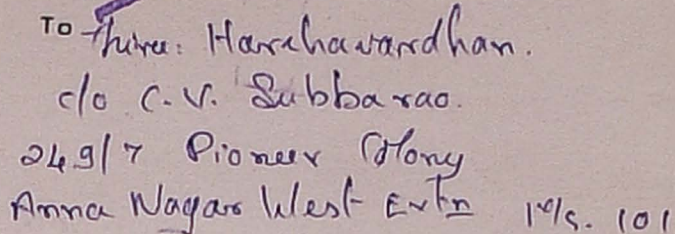 To Thiru. Harshavardhan.
c/o C.V. Subbarao.
249/7 Pioneer Colony
Anna Nagar West Extn 101